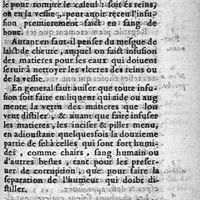 le pour rompre le calcul : soit és reins,
ou en la vessie, peut avoir receu l'infu-
sion premierement faict en sang de
bout.
Autant en faut-il penser du mesgue de
laict de chieure, auquel on faict infusion
des matieres pour les eaux qui doiuent
seruir à nettoyer les vlceres des reins ou
de la vessie.
En general faut auiser que toute infu-
sion soit faire en liquent qui aide ou aug-
mente la vertu des matieres que lon
veut distiler, & auant que faire infuser
les matieres, les inciser & piller menu,
en adioustant quelquesfois la douzieme
partie de sel à celles qui sont fort humi-
des, comme chairs, sang humain ou
d'autres bestes, tant pour les preser-
uer de corruption, que pour faire la
separation de l'humeur qui doibt di-
stiller.